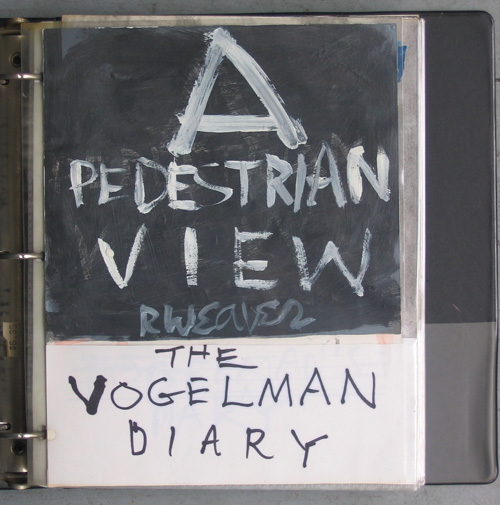 A
PEDESTRIAN
VIEW
RWEAVER
THE
VOGELMAN
DIARY